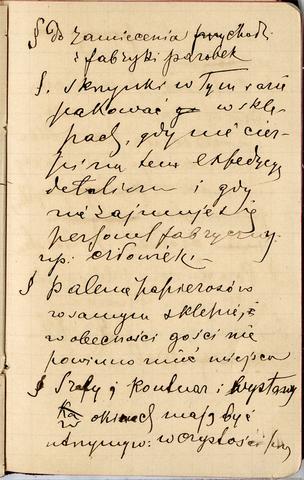 § do zamiecenia przychodzi
z fabryki parobek
§. Skrzynki w tym razie
pakować w skle-
pach, gdy nie cier-
pi na tem ekspedycya
detaliczna i gdy
nie zajmuje się
personel fabryczny
np. człowiek.
§ Palenie papierosów
w samym sklepie i
w obecności gości nie
powinno mieć miejsca
§ Szafy, kontuar i wystawy
w oknach mają być
utrzymyw: w czystości